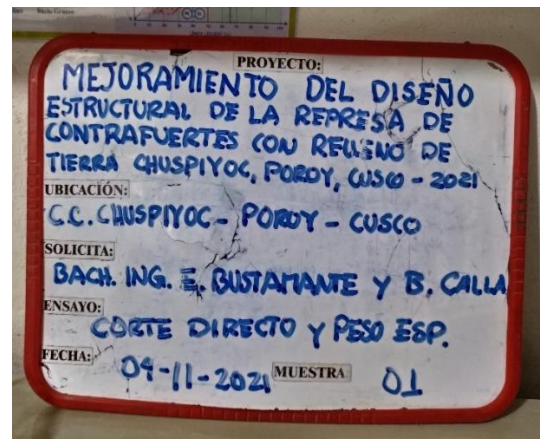 PROYECTO:
MEJORAMIENTO DEL DISEÑO
ESTRUCTURAL DE LA REPRESA DE
CONTRAFUERTES CON RELLENO DE
TIERRA CHUSPIYOC, POROY, CUSCO - 2021
UBICACIÓN:
C.C. CHUSPIYOC - POROY - CUSCO
SOLICITA:
BACH. ING. E. BUSTAMANTE Y B. CALLA
ENSAYO:
CORTE DIRECTO Y PESO ESP.
FECHA:
04-11-2021 MUESTRA 01